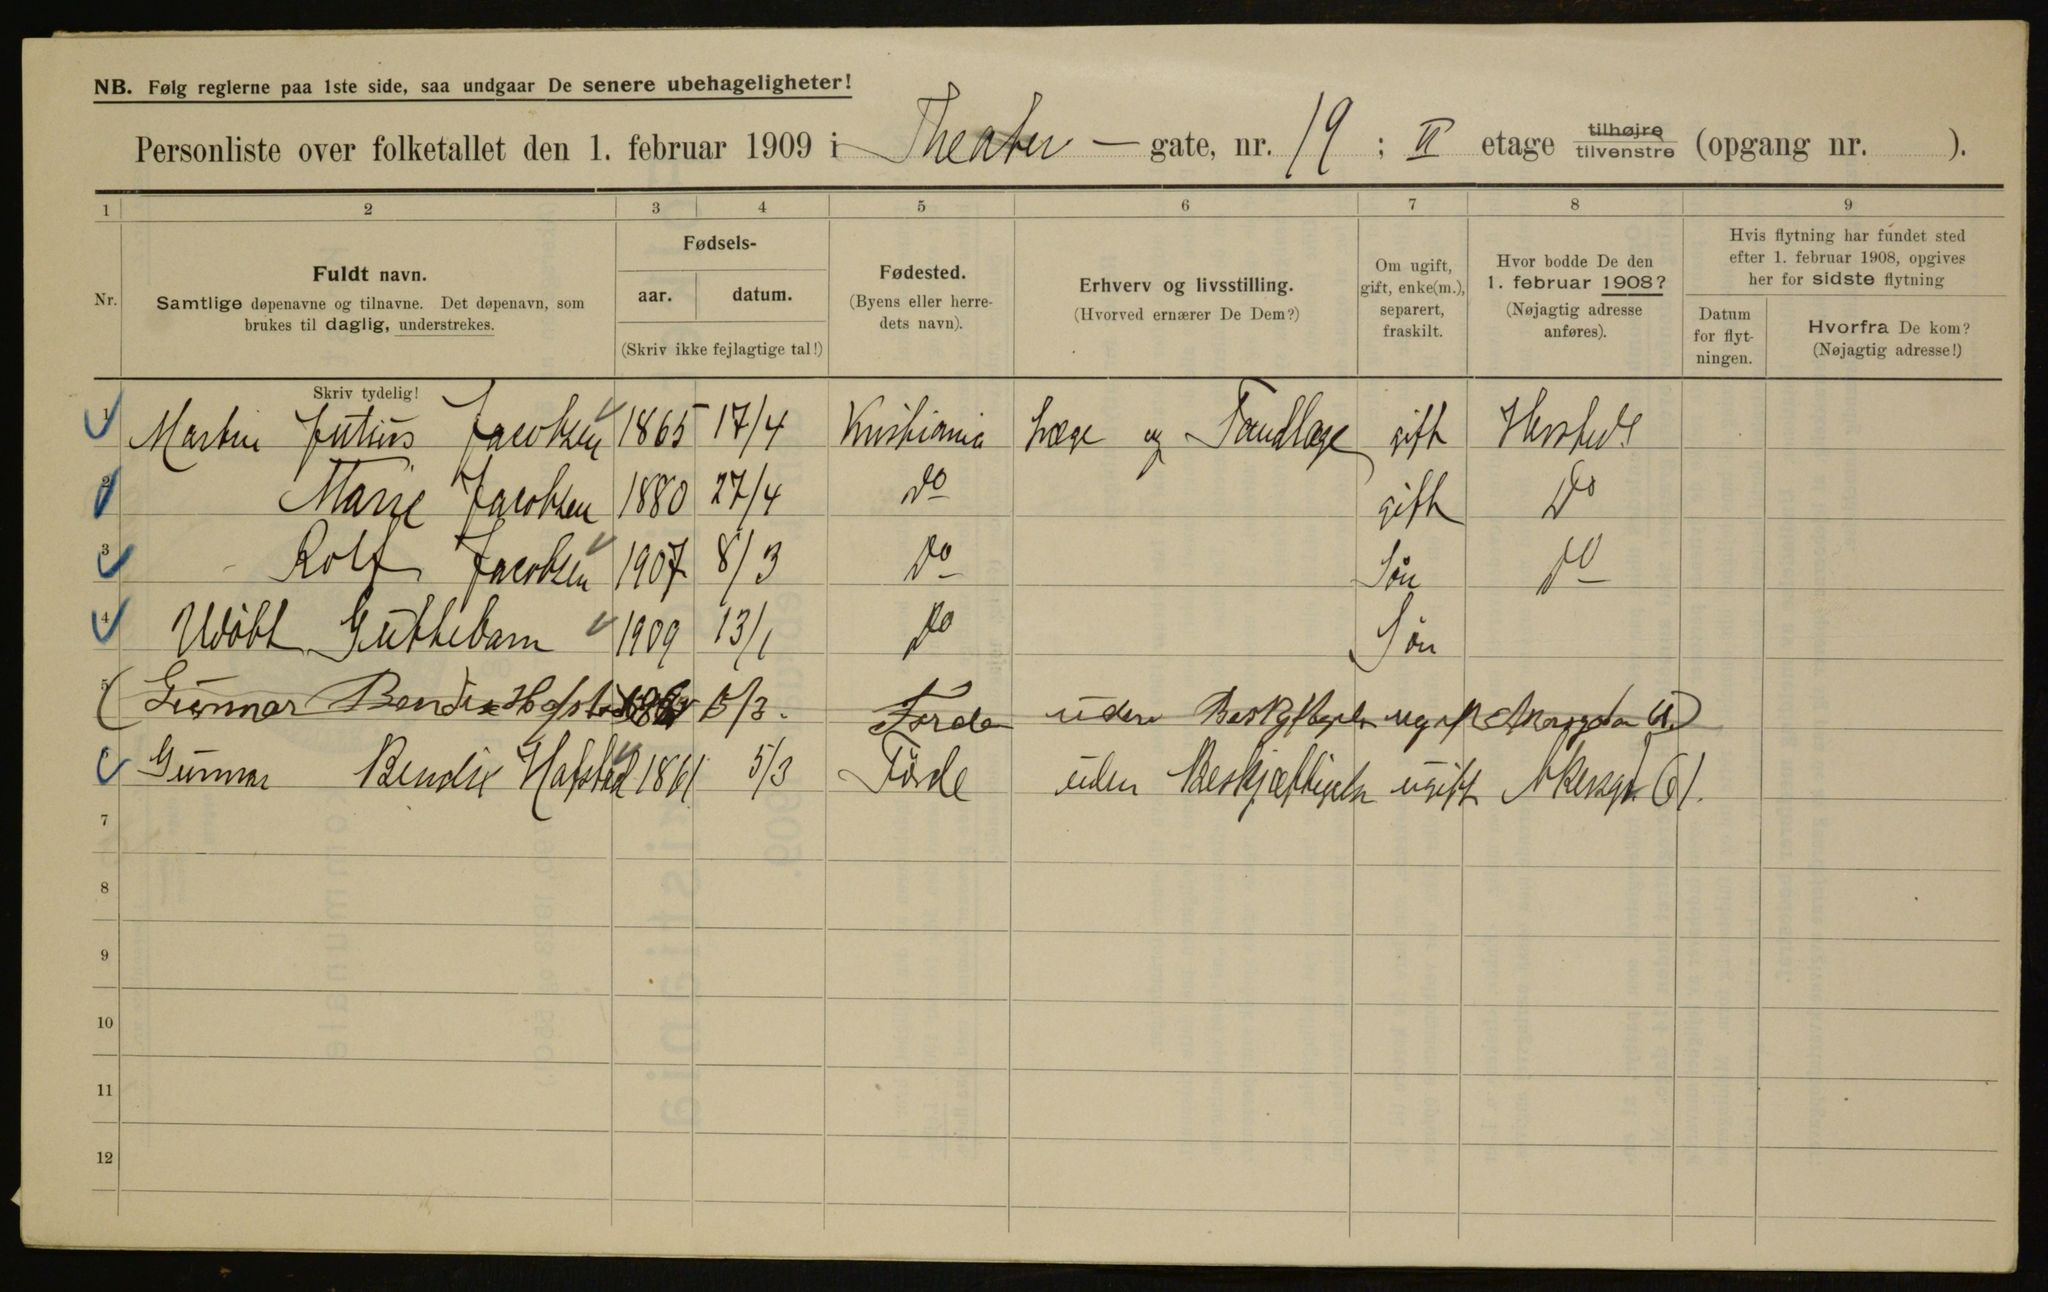 NB. Følg reglerne paa 1ste side, saa undgaar De senere ubehageligheter!
Personliste over folketallet den 1. februar 1909 i Theater - gate, nr. 19 ; II etage tilhøjre tilvenstre (opgang nr. ).
1 2 3 4 5 6 7 8 9
Nr.
Fuldt navn.
Samtlige døpenavne og tilnavne. Det døpenavn, som
brukes til daglig, understrekes.
Fødsels-
aar. datum.
(Skriv ikke fejlagtige tal!)
Fødested.
(Byens eller herre-
dets navn).
Erhverv og livsstilling.
(Hvorved ernærer De Dem?)
Om ugift,
gift, enke(m.),
separert,
fraskilt.
Hvor bodde De den
1. februar 1908?
(Nøjagtig adresse
anføres).
Hvis flytning har fundet sted
efter 1. februar 1908, opgives
her for sidste flytning
Datum
for flyt-
ningen.
Hvorfra De kom?
(Nøjagtig adresse!)
Skriv tydelig!
1 Martin Julius Jacobsen 1865 17/4 Kristiania Læge og Tandlæge gift Hersteds
2 Marie Jacobsen 1880 27/4 do gift Do
3 Rolf Jacobsen 1907 8/3 Do Søn Do
4 Udøbt Guttebarn 1909 13/1 Do Søn
5 (Gunnar Bendix 5/3. Førde uden
6 Gunnar Bendix Hafstad 1861 5/3 Førde uden Beskjæftigelse ugift Akersgt. 61.
7
8
9
10
11
12